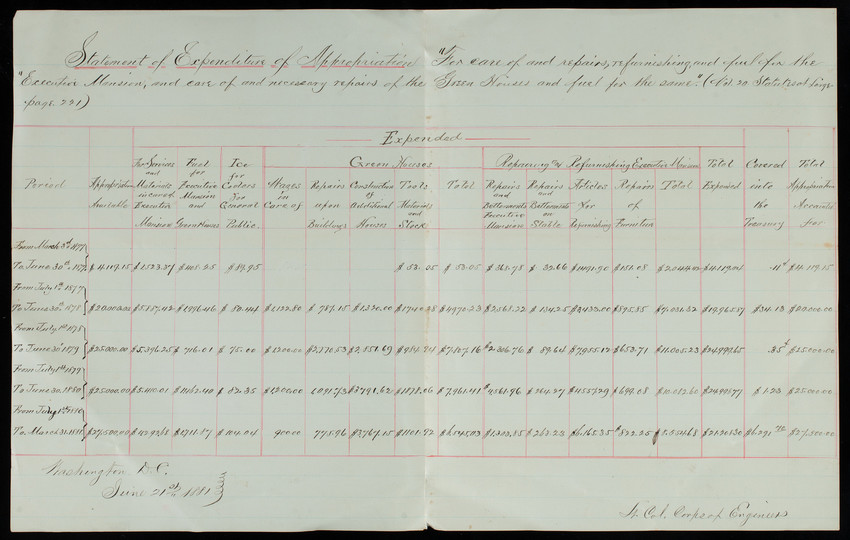 Statement of Expenditure of Appropriation "For care of and repairs, refurnishing, and fuel for the
"Executive Mansion, and care of and necessary repairs of the Green Houses and fuel for the same." (Vol. 20 Statutes at Large
page 221)
Expended
Green Houses
Repairing & Refurnishing Executive Mansion
Period
Appropriation Available
For Services and Materials in care of Executive Mansion
Fuel for Executive Mansion and Green Houses
Ice for Coolers for General Public
Wages in Care of
Repairs upon Buildings
Construction Additional Houses
Tools Materials and Stock
Total
Repairs and Betterments Executive Mansion
Repairs and Betterments on Stable
Articles for Refurnishing
Repairs of Furniture
Total
Total Expended
Covered into the Treasury
Total Appropriation Accounted for
From March 3d 1877
To June 30th 1877 $4,119.15 $1,523.37 $408.25 $89.95 $53.05 $53.05 $365.78 32.66 $1491.90 $151.08 .11 $4,119.15
From July 1st 1877
To June 30th 1878 $20,000.00 $5,857.42 $1996.46 $80.44 $1,122.80 $787.15 $1,320.00 $4970.23 $2,568.22 $134.25 $3,433.00 $895.85 $7,031.32 $34.13 $20,000.00
From July 1st 1878
To June 30th 1879 $25,000.00 $5,396.25 $716.01 $75.00 $1,200.00 $2,851.69 $7,807.16 $2,306.76 89.64 $7,955.12 $653.71 $11,005.23 $24,999.65 .35 $25,000.00
From July 1st 1879
To June 30 1880 $25,000.00 $1162.40 $82.35 $1,200.00 1,091.73 $3791.62 $1878.06 $7,961.41 $4,561.96 $264.27 $4,557.29 $699.08 $24,998.77 $1.23 $25,000.00
From July 1st 1880
To March 31, 1881 $27,500.00 $104.04 900.00 775.96 $3767.15 $1101.92 $6,545.03 $263.23 $6,165.35 $27,500.00
Washington D.C.
June 21st 1881
Lt. Col. Corps of Engineers